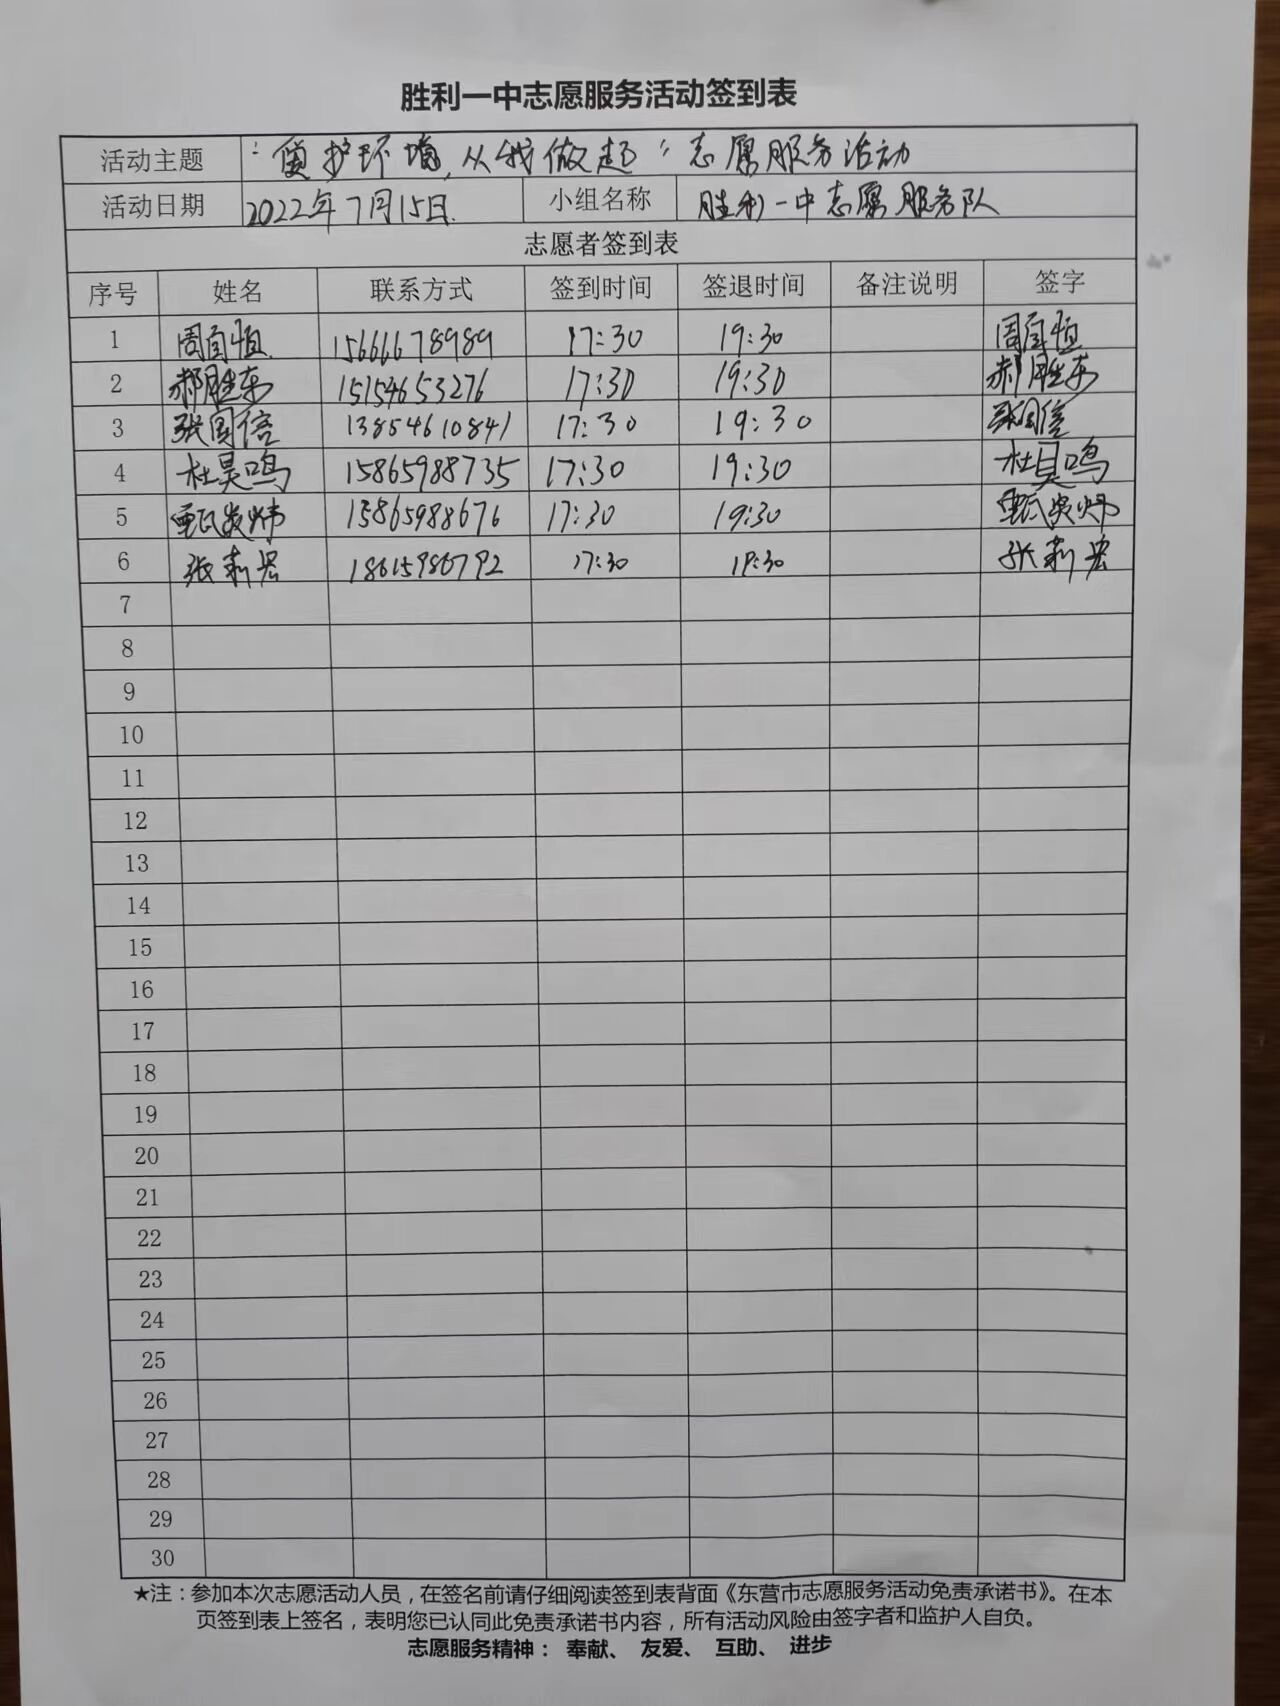 胜利一中志愿服务活动签到表
活动主题 "爱护环境,从我做起"志愿服务活动
活动日期 2022年7月15日. 小组名称 胜利一中志愿服务队
志愿者签到表
序号 姓名 联系方式 签到时间 签退时间 备注说明 签字
1 周自恒 15666678989 17:30 19:30 周自恒
2 郝胜东 15154653276 17:30 19:30 郝胜东
3 张国信 13854610841 17:30 19:30 张国信
4 杜昊鸣 15865988735 17:30 19:30 杜昊鸣
5 15865988676 17:30 19:30
6 张莉宏 18615986792 17:30 19:30 张莉宏
7
8
9
10
11
12
13
14
15
16
17
18
19
20
21
22
23
24
25
26
27
28
29
30
★注：参加本次志愿活动人员，在签名前请仔细阅读签到表背面《东营市志愿服务活动免责承诺书》。在本
页签到表上签名，表明您已认同此免责承诺书内容，所有活动风险由签字者和监护人自负。
志愿服务精神： 奉献、 友爱、 互助、 进步